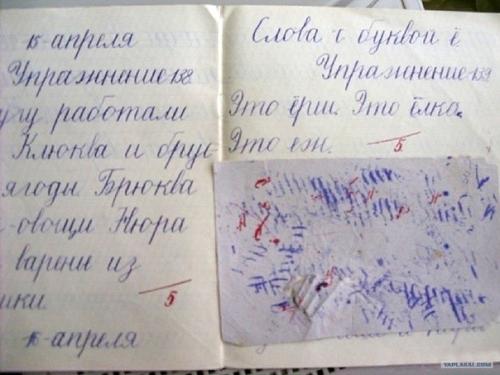 15-апреля
Упражнение 158
угу работали
Клюква и брус-
ягоды. Брюква
-овощи. Нюра
варени из
ики.
5
15-апреля
Слова с буквой ё.
Упражнение 159
Это ёрш. Это ёлка.
Это еж.
5
YAPLAKAL.COM